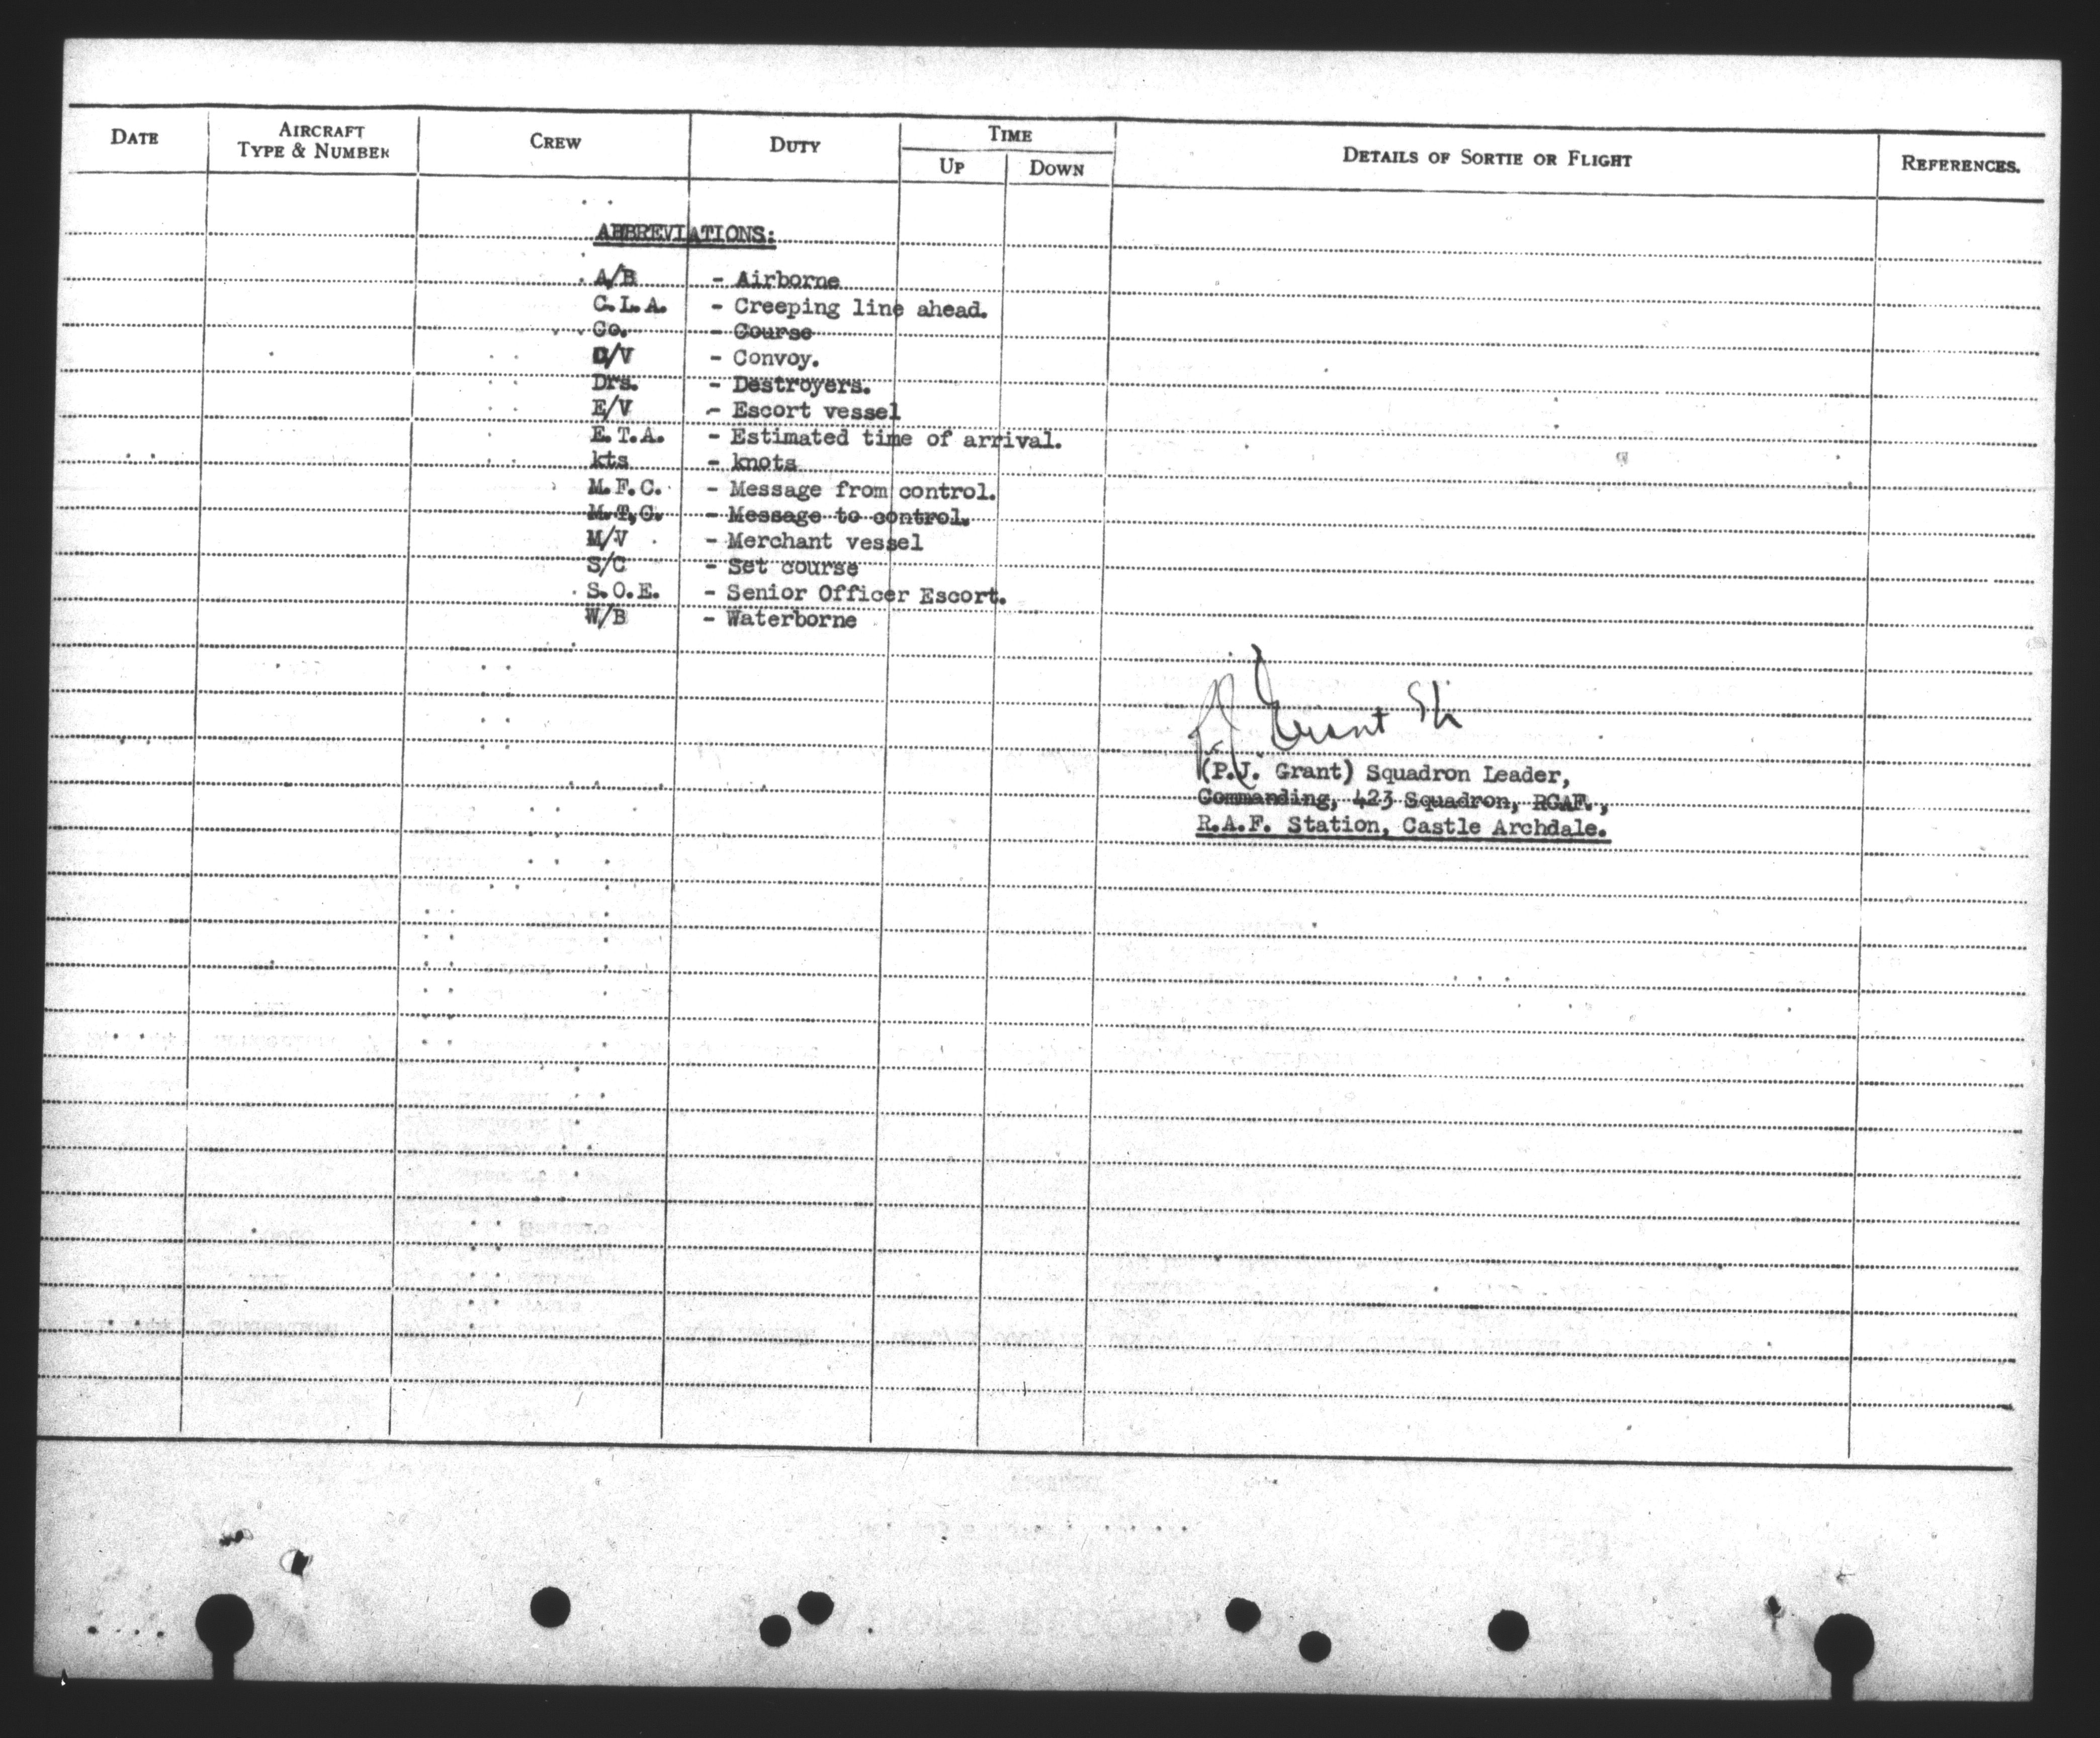 DATE AIRCRAFT TYPE & NUMBER CREW DUTY TIME UP DOWN DETAILS OF SORTIE OR FLIGHT REFERENCES.
ABBREVIATIONS:
A/B - Airborne
C.L.A. - Creeping line ahead.
Co. - Course
C/V - Convoy.
Drs. - Destroyers.
E/V - Escort vessel
E.T.A. - Estimated time of arrival.
kts - knots
M.F.C. - Message from control.
M.T.C. - Message to control.
M/V - Merchant vessel
S/C - Set course
S.O.E. - Senior Officer Escort.
W/B - Waterborne
P.J. Grant S/L
(P.J. Grant) Squadron Leader,
Commanding, 423 Squadron, RCAF.,
R.A.F. Station, Castle Archdale.